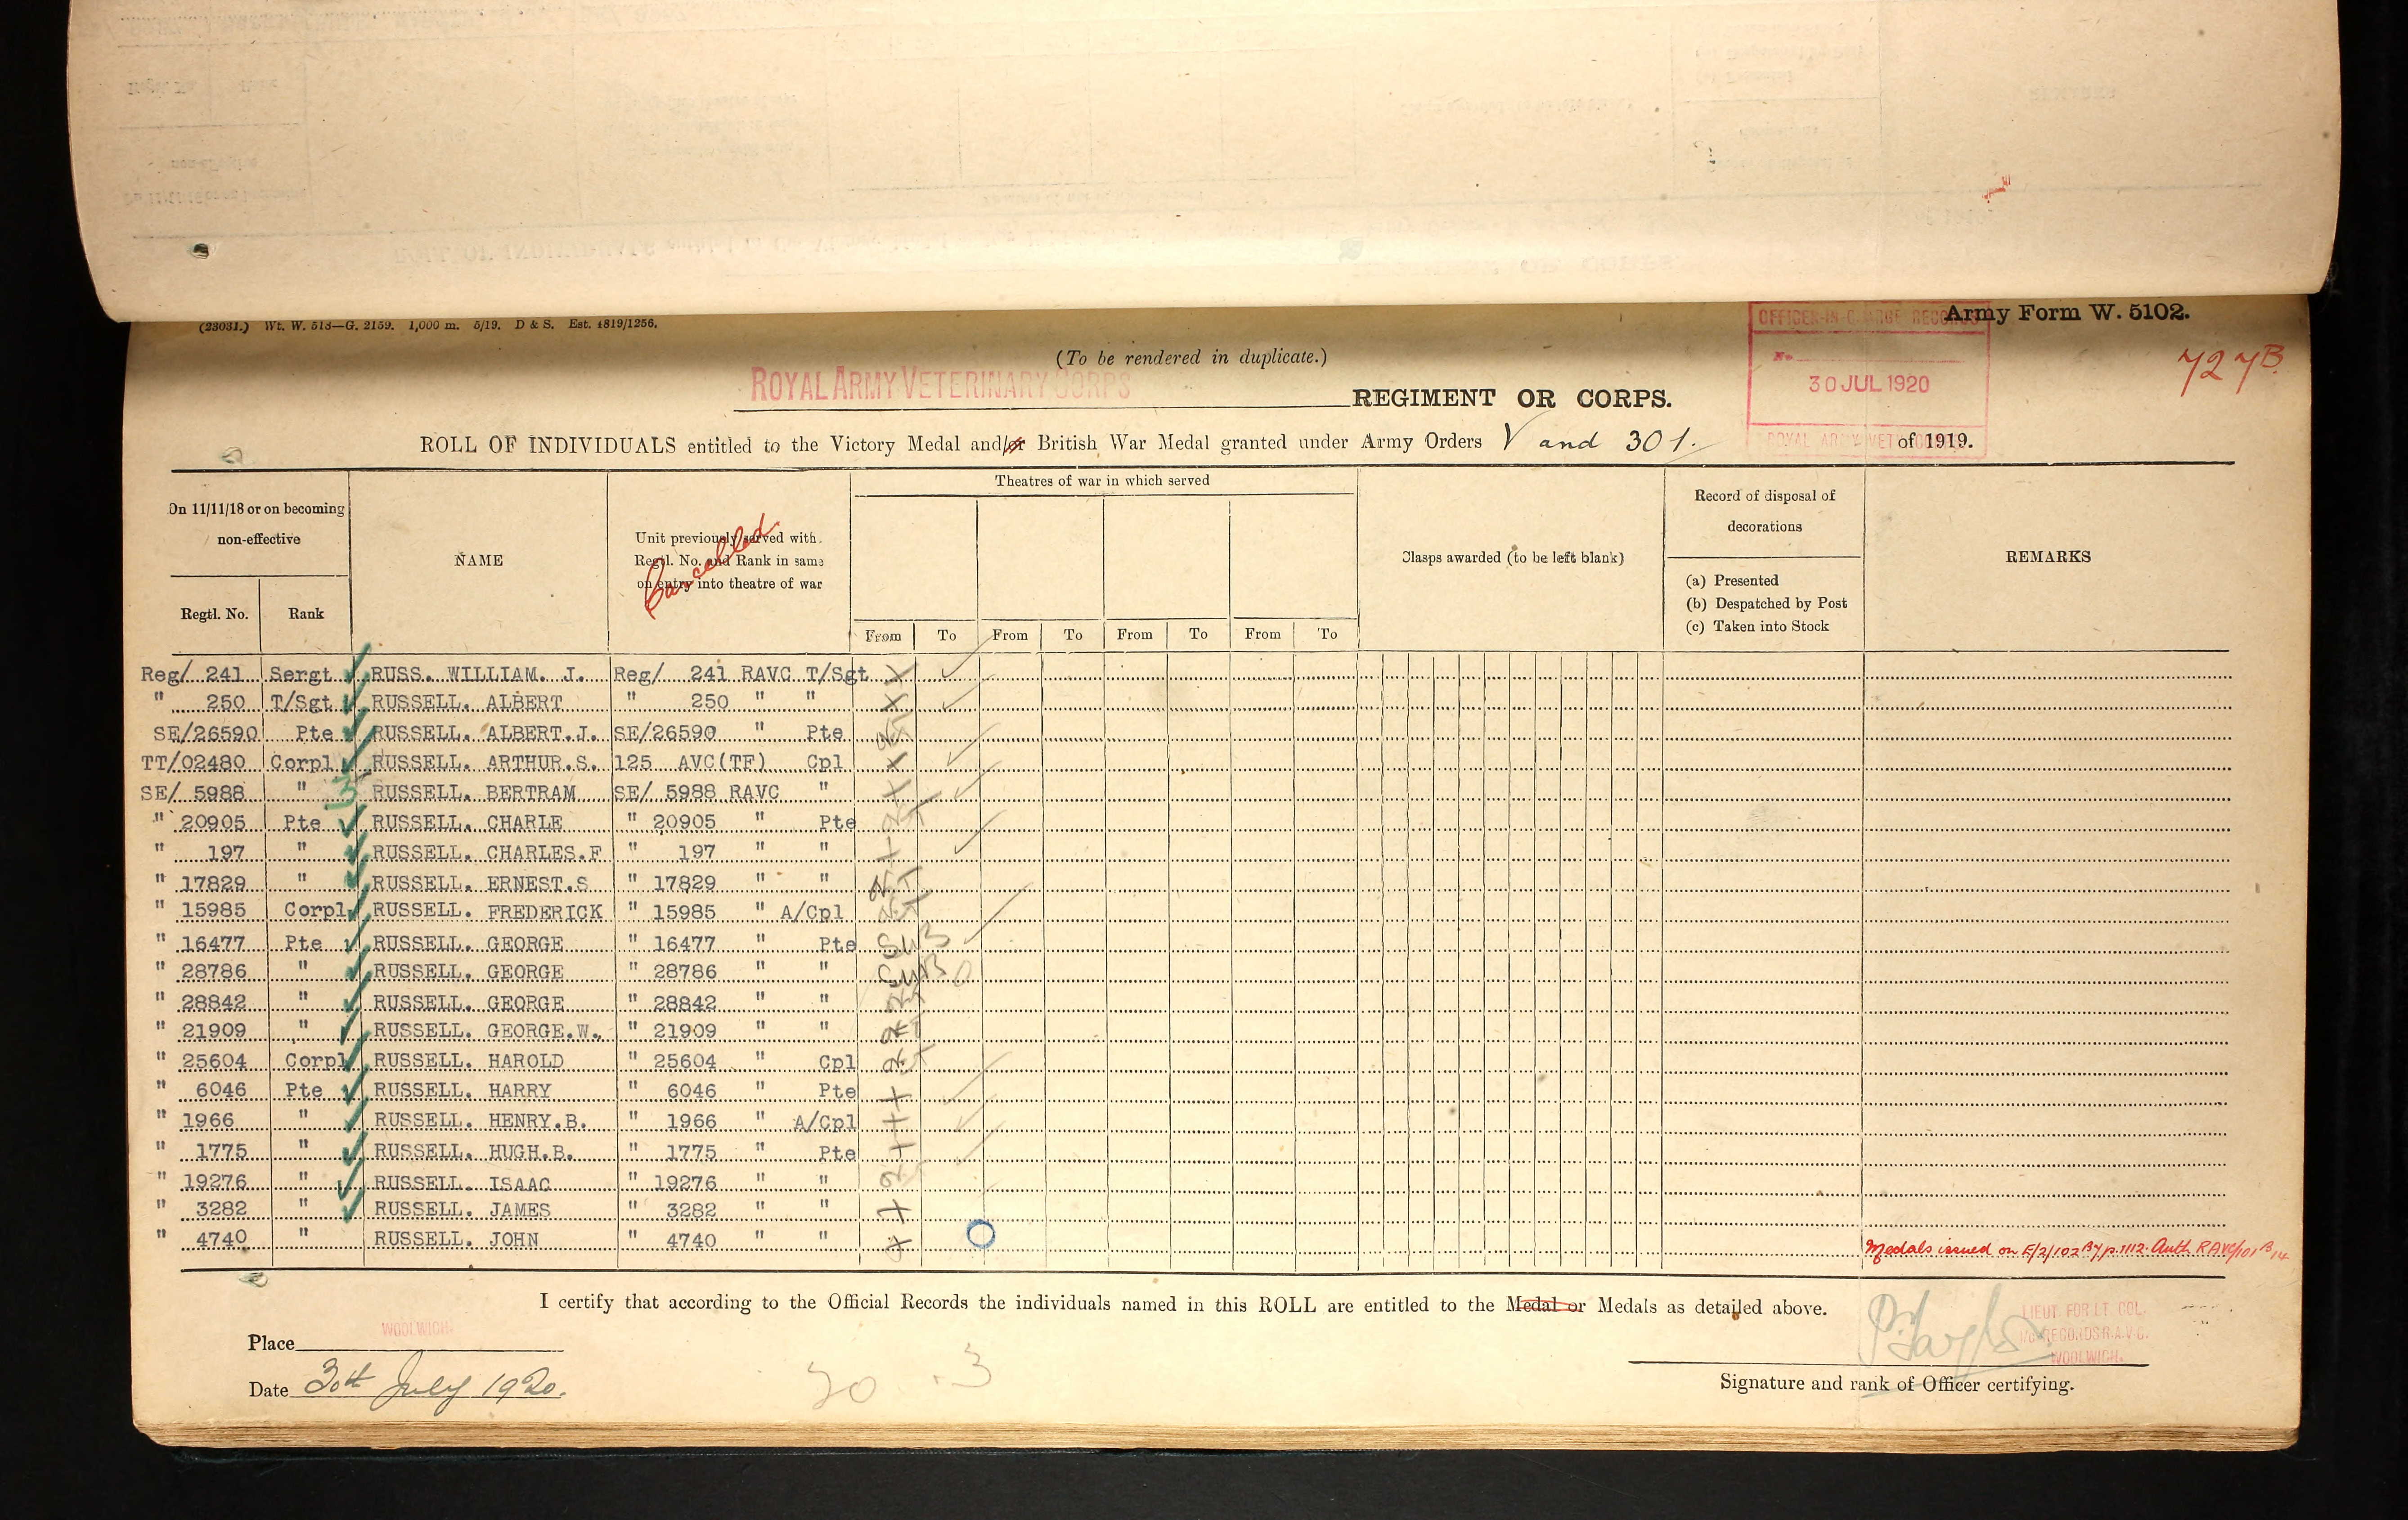 (23031.) Wt. W. 513—G. 2159. 1,000 m. 5/19. D & S. Est. 1819/1256.
Army Form W. 5102.
OFFICER-IN-CHARGE RECORDS
(To be rendered in duplicate.)
No.
727B
30 JUL 1920
ROYAL ARMY VETERINARY CORPS REGIMENT OR CORPS.
ROYAL ARMY VET
ROLL OF INDIVIDUALS entitled to the Victory Medal and/or British War Medal granted under Army Orders V and 301. of 1919.
On 11/11/18 or on becoming non-effective
Regtl. No.
Rank
NAME
Unit previously served with. Regtl. No. and Rank in same on entry into theatre of war
Cancelled
Theatres of war in which served
From To From To From To From To
Clasps awarded (to be left blank)
Record of disposal of decorations
(a) Presented
(b) Despatched by Post
(c) Taken into Stock
REMARKS
Reg/ 241 Sergt RUSS. WILLIAM. J. Reg/ 241 RAVC T/Sgt
" 250 T/Sgt RUSSELL. ALBERT " 250 " "
SE/26590 Pte RUSSELL. ALBERT.J. SE/26590 " Pte
TT/02480 Corpl RUSSELL. ARTHUR.S. 125 AVC(TF) Cpl
SE/ 5988 " RUSSELL. BERTRAM SE/ 5988 RAVC "
" 20905 Pte RUSSELL. CHARLE " 20905 " Pte
" 197 " RUSSELL. CHARLES.F " 197 " "
" 17829 " RUSSELL. ERNEST.S " 17829 " "
" 15985 Corpl RUSSELL. FREDERICK " 15985 " A/Cpl
" 16477 Pte RUSSELL. GEORGE " 16477 " Pte
" 28786 " RUSSELL. GEORGE " 28786 " "
" 28842 " RUSSELL. GEORGE " 28842 " "
" 21909 " RUSSELL. GEORGE.W. " 21909 " "
" 25604 Corpl RUSSELL. HAROLD " 25604 " Cpl
" 6046 Pte RUSSELL. HARRY " 6046 " Pte
" 1966 " RUSSELL. HENRY.B. " 1966 " A/Cpl
" 1775 " RUSSELL. HUGH.B. " 1775 " Pte
" 19276 " RUSSELL. ISAAC " 19276 " "
" 3282 " RUSSELL. JAMES " 3282 " "
" 4740 " RUSSELL. JOHN " 4740 " " Medals issued on E/2/102 B7 p.1112. Auth RAVC/101 B/14
I certify that according to the Official Records the individuals named in this ROLL are entitled to the Medal or Medals as detailed above.
Place WOOLWICH.
LIEUT. FOR LT. COL.
RECORDS R.A.V.C.
WOOLWICH.
Date 30th July 1920.
20 . 3
Signature and rank of Officer certifying.